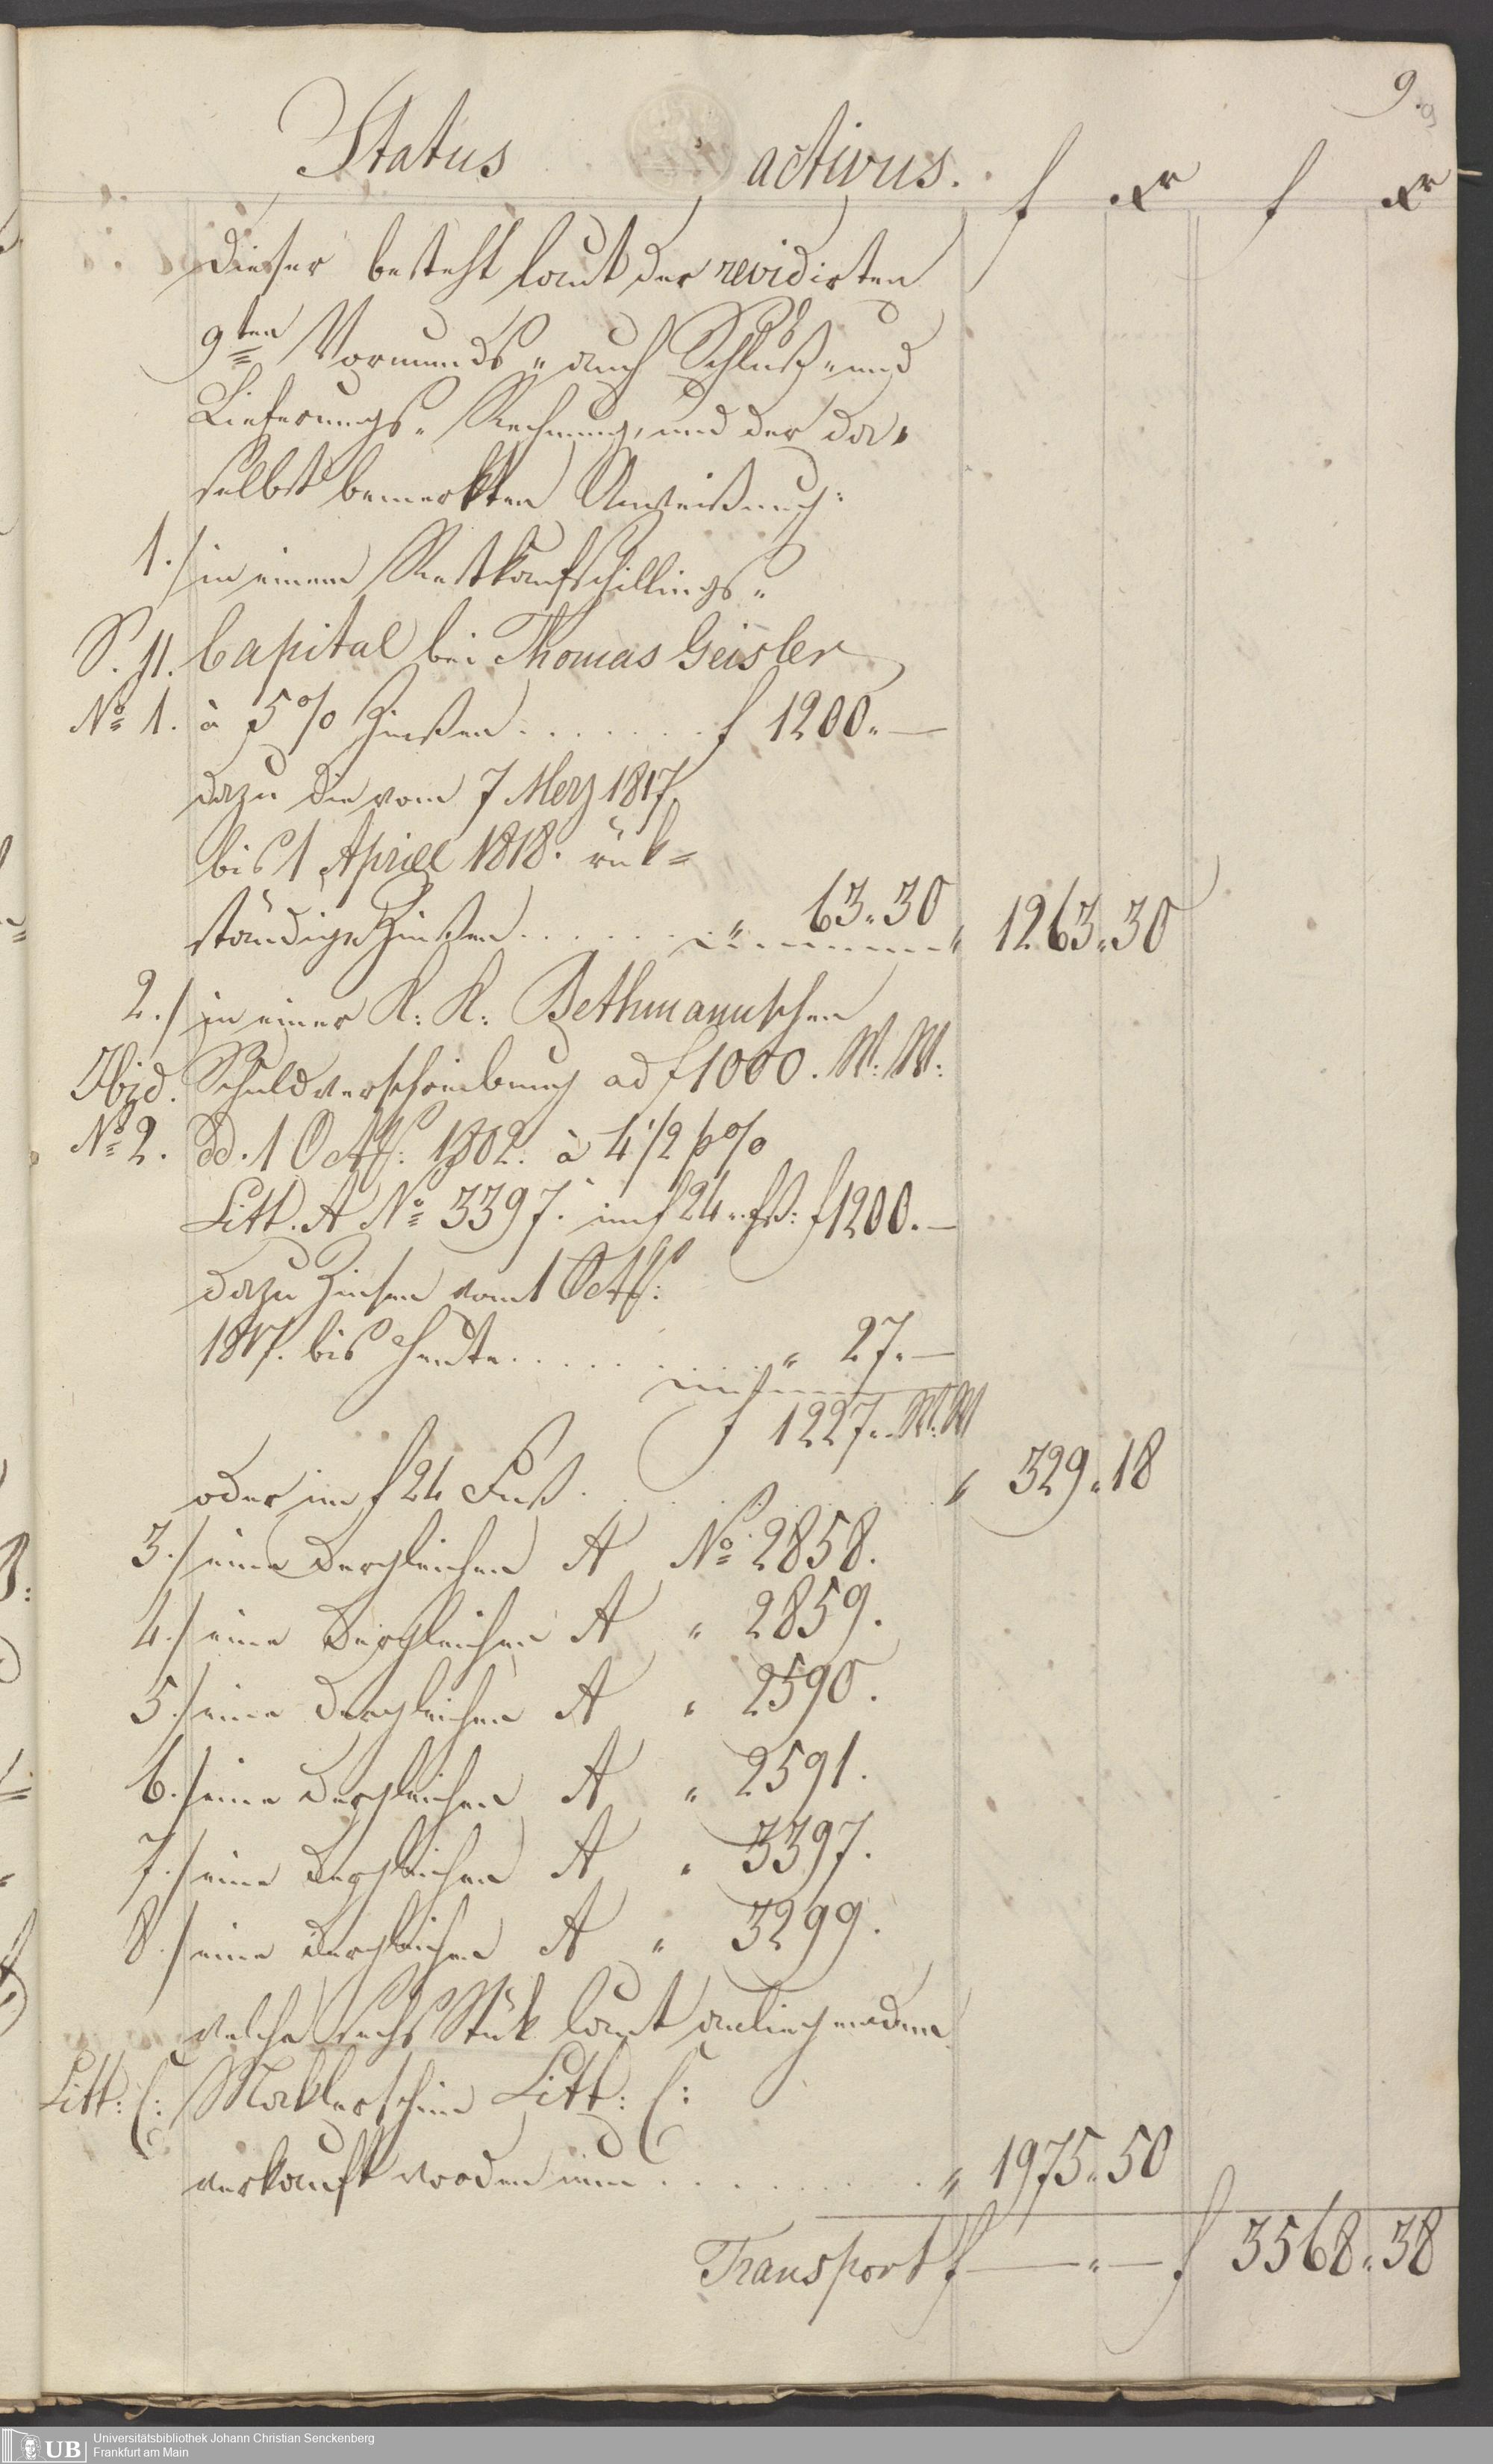 9.
9
Status activus.
f xr f xr
Dieser besteht laut der revidirten
9ten Vormunds- auch Schluß- und
Lieferungs- Rechnung, und der da-
selbst bemerkten Anweißung:
1./ in einem Restkaufschillings-
S. 11. Capital bei Thomas Geisler
No 1. à 5% Zinßen . . . . . . . f 1200. —
dazu die vom 7 Merz 1817.
bis 1 Aprill 1818. rük=
ständige Zinßen . . . . . . " 63. 30 " 1263. 30
2./ in einer K: K: Bethmannschen
Ibid. Schuldverschreibung ad f 1000. W: W:
No 2. dd. 1 Octbr: 1802. à 4 1/2 p%
Litt. A No 3397. im f 24. fß: f 1200. —
dazu Zinsen vom 1 Octbr:
1817. bis heute . . . . . . . . " 27. —
f 1227. W: W
oder im f 24 Fuß . . . . . . . . " 329. 18
3./ eine dergleichen A No 2858.
4./ eine dergleichen A " 2859.
5./ eine dergleichen A " 2590.
6./ eine dergleichen A " 2591.
7./ eine dergleichen A " 3397.
8./ eine dergleichen A " 3299.
welche sechs Stük laut anliegendem
Litt: C: Maklerschein Litt: C:
verkauft worden um . . . . . . . . " 1975. 50
Transport f — " — f 3568. 38
UB
Universitätsbibliothek Johann Christian Senckenberg
Frankfurt am Main